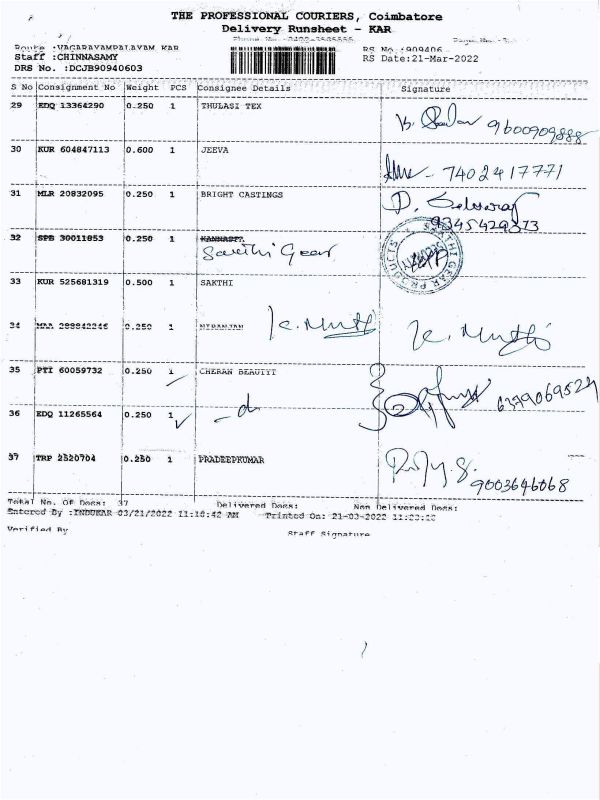 THE PROFESSIONAL COURIERS, Coimbatore
Delivery Runsheet - KAR
Route :VAGARAYAMPALAYAM KAR
RS No.:909406
Staff :CHINNASAMY
RS Date:21-Mar-2022
DRS No. :DCJB90940603
S No Consignment No Weight PCS Consignee Details Signature
29 EDQ 13364290 0.250 1 THULASI TEX
9600909888
30 KUR 604847113 0.600 1 JEEVA
7402417771
31 MLR 20832095 0.250 1 BRIGHT CASTINGS
D. Selvaraj
9345429373
32 SPB 30011853 0.250 1
Sakthi Gear
SAKTHI GEAR PRODUCTS
33 KUR 525681319 0.500 1 SAKTHI
34 MAA 288842246 0.250 1 NIRANJAN K. Muthu K. Muthu
35 PTI 60059732 0.250 1 CHERAN BEAUTYT
6379069524
36 EDQ 11265564 0.250 1
37 TRP 2520704 0.250 1 PRADEEPKUMAR
9003646068
Total No. Of Docs: 37 Delivered Docs: Non Delivered Docs:
Entered By :INDUKAR 03/21/2022 11:18:42 AM Printed On: 21-03-2022
Verified By Staff Signature